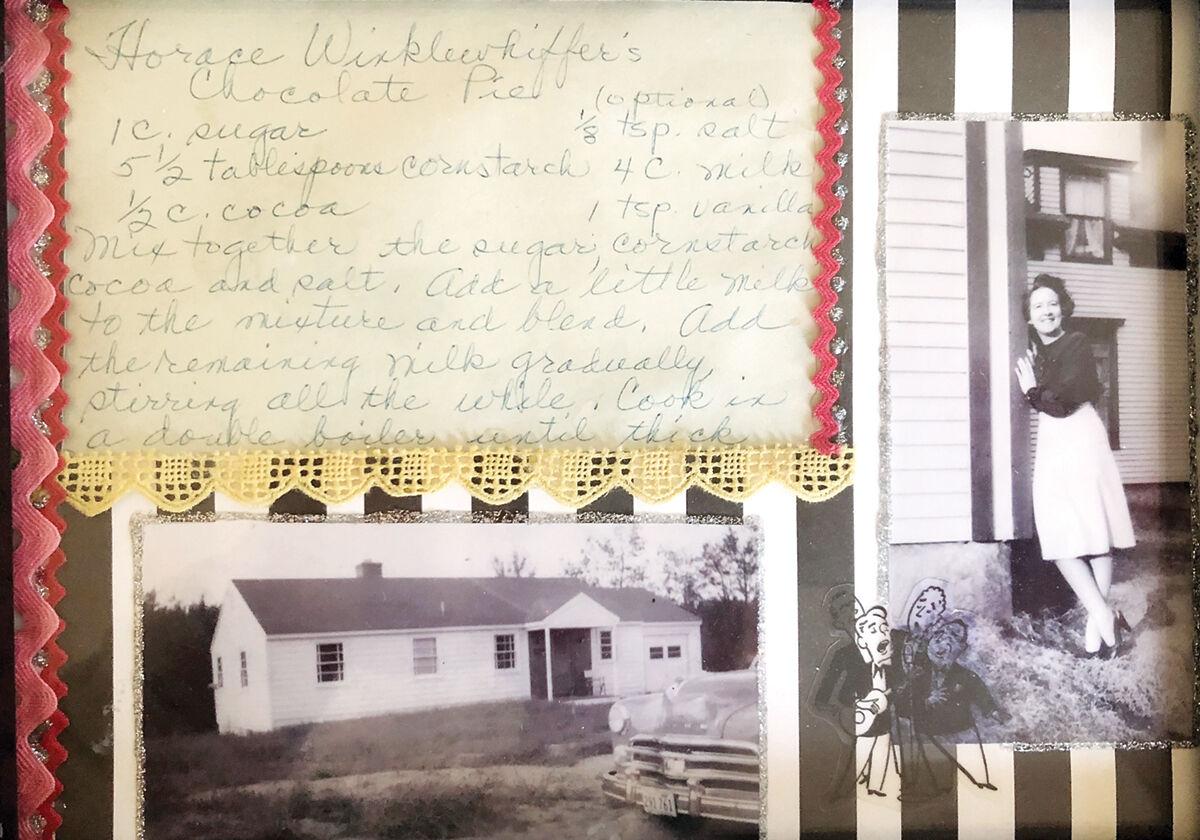 Horace Winklewhiffer's
Chocolate Pie
(optional)
1 c. sugar 1/8 tsp. salt
5 1/2 tablespoons cornstarch 4 c. milk
1/2 c. cocoa 1 tsp. vanilla
Mix together the sugar, cornstarch
cocoa and salt. Add a little milk
to the mixture and blend. Add
the remaining milk gradually,
stirring all the while. Cook in
a double boiler until thick